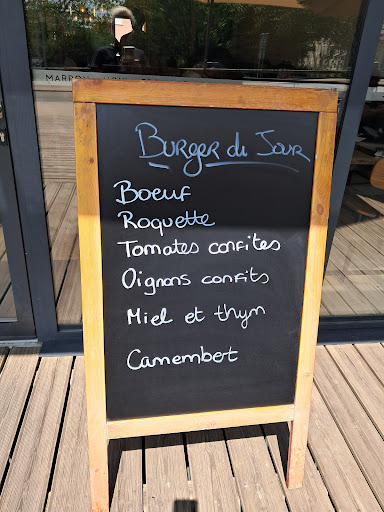 Burger du Jour
Boeuf
Roquette
Tomates confites
Oignons confits
Miel et thym
Camembert